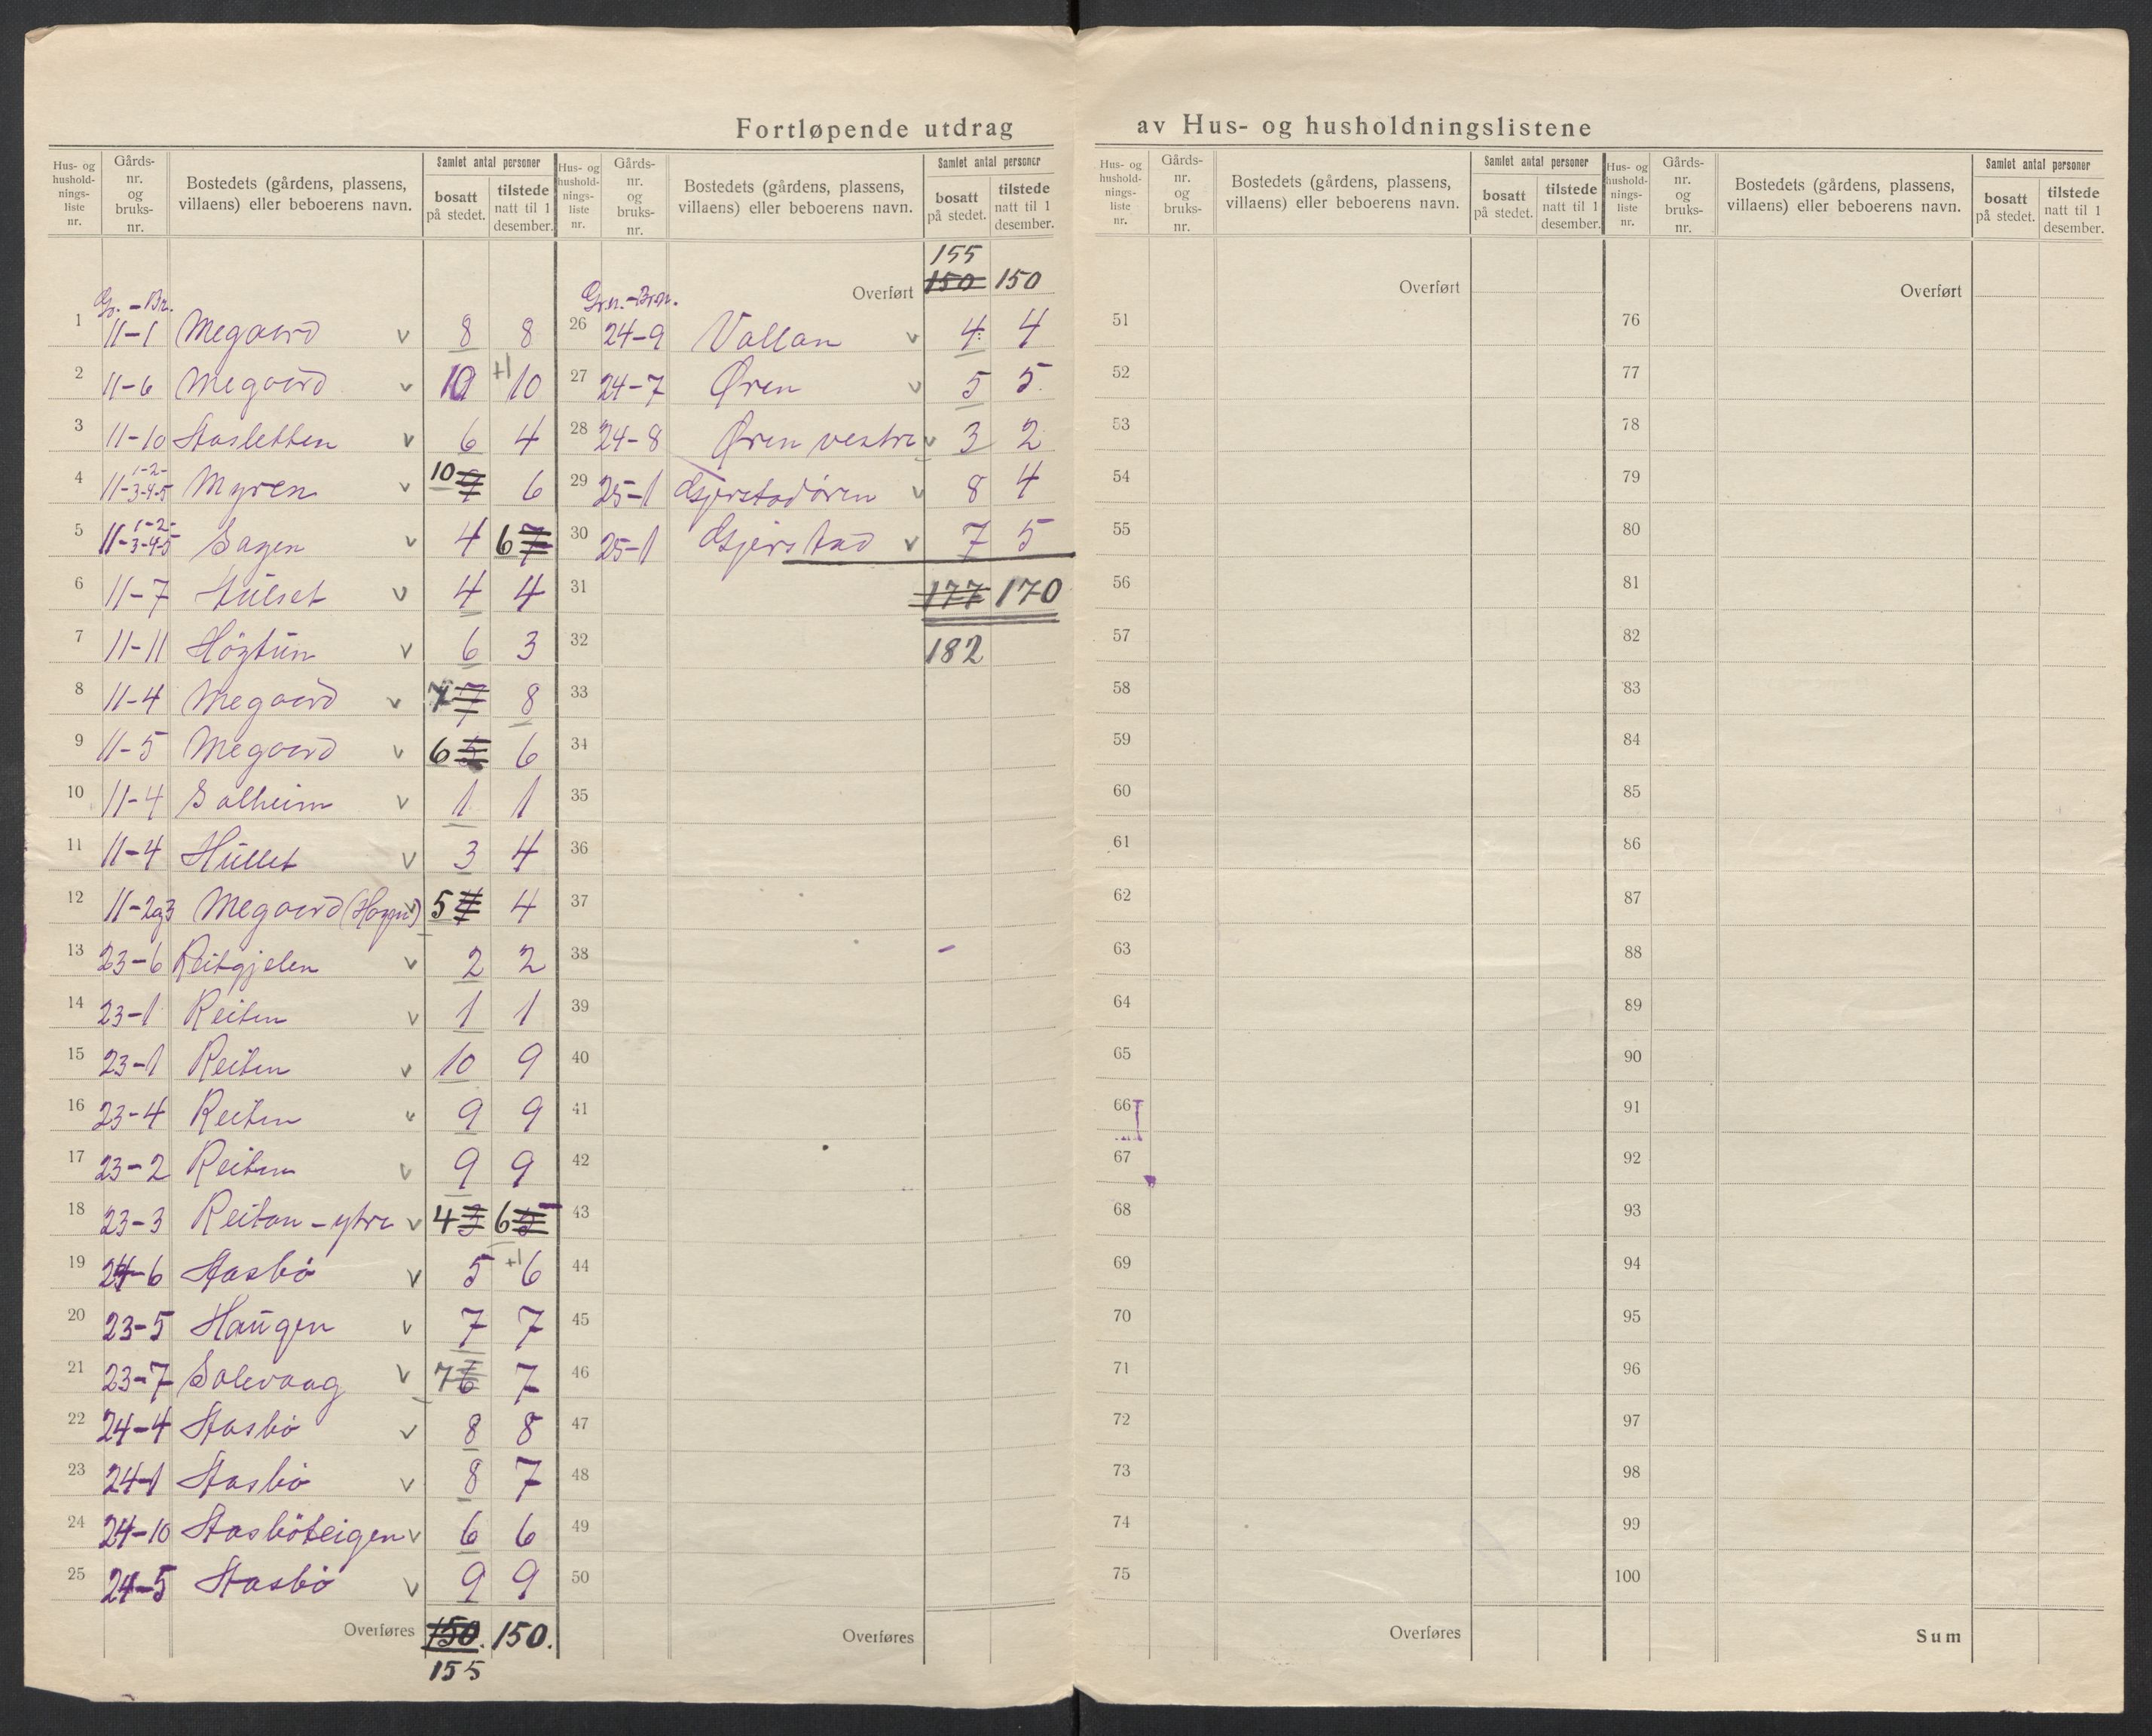 Fortløpende utdrag av Hus- og husholdningslistene
Hus- og hushold- nings- liste nr. | Gårds- nr. og bruks- nr. | Bostedets (gårdens, plassens, villaens) eller beboerens navn. | Samlet antal personer | bosatt på stedet. | tilstede natt til 1 desember.
Gr. - Br.
1 11-1 Megaard v 8 8
2 11-6 Megaard v 10 +1 10
3 11-10 Aasletten v 6 4
4 11-1-2-3-4-5 Myren v 10 6
5 11-1-2-3-4-5 Sagen v 4 6 7
6 11-7 v 4 4
7 11-11 Högtun v 6 3
8 11-4 Megaard v 7 7 8
9 11-5 Megaard v 6 5 6
10 11-4 Solheim v 1 1
11 11-4 Hullet v 3 4
12 11-2og3 Megaard v 5 4 4
13 23-6 Reitgjelen v 2 2
14 23-1 Reiten v 1 1
15 23-1 Reiten v 10 9
16 23-4 Reiten v 9 9
17 23-2 Reiten v 9 9
18 23-3 Reitan - ytre v 4 3 6 5
19 24-6 Aasbö v 5 +1 6
20 23-5 Haugen v 7 7
21 23-7 Solevaag v 7 6 7
22 24-4 Aasbö v 8 8
23 24-1 Aasbö v 8 7
24 24-10 Aasböteigen v 6 6
25 24-5 Aasbö v 9 9
Overføres 150. 150.
155
Hus- og hushold- nings- liste nr. | Gårds- nr. og bruks- nr. | Bostedets (gårdens, plassens, villaens) eller beboerens navn. | Samlet antal personer | bosatt på stedet. | tilstede natt til 1 desember.
155
Overført 150 150
Grn. - Brn.
26 24-9 Vollan v 4 4
27 24-7 Øren v 5 5
28 24-8 Øren vestre v 3 2
29 25-1 Gjerstadören v 8 4
30 25-1 Gjerstad v 7 5
31 177 170
32 182
33
34
35
36
37
38 -
39
40
41
42
43
44
45
46
47
48
49
50
Overføres
Hus- og hushold- nings- liste nr. | Gårds- nr. og bruks- nr. | Bostedets (gårdens, plassens, villaens) eller beboerens navn. | Samlet antal personer | bosatt på stedet. | tilstede natt til 1 desember.
Overført
51
52
53
54
55
56
57
58
59
60
61
62
63
64
65
66
67
68
69
70
71
72
73
74
75
Overføres
Hus- og hushold- nings- liste nr. | Gårds- nr. og bruks- nr. | Bostedets (gårdens, plassens, villaens) eller beboerens navn. | Samlet antal personer | bosatt på stedet. | tilstede natt til 1 desember.
Overført
76
77
78
79
80
81
82
83
84
85
86
87
88
89
90
91
92
93
94
95
96
97
98
99
100
Sum